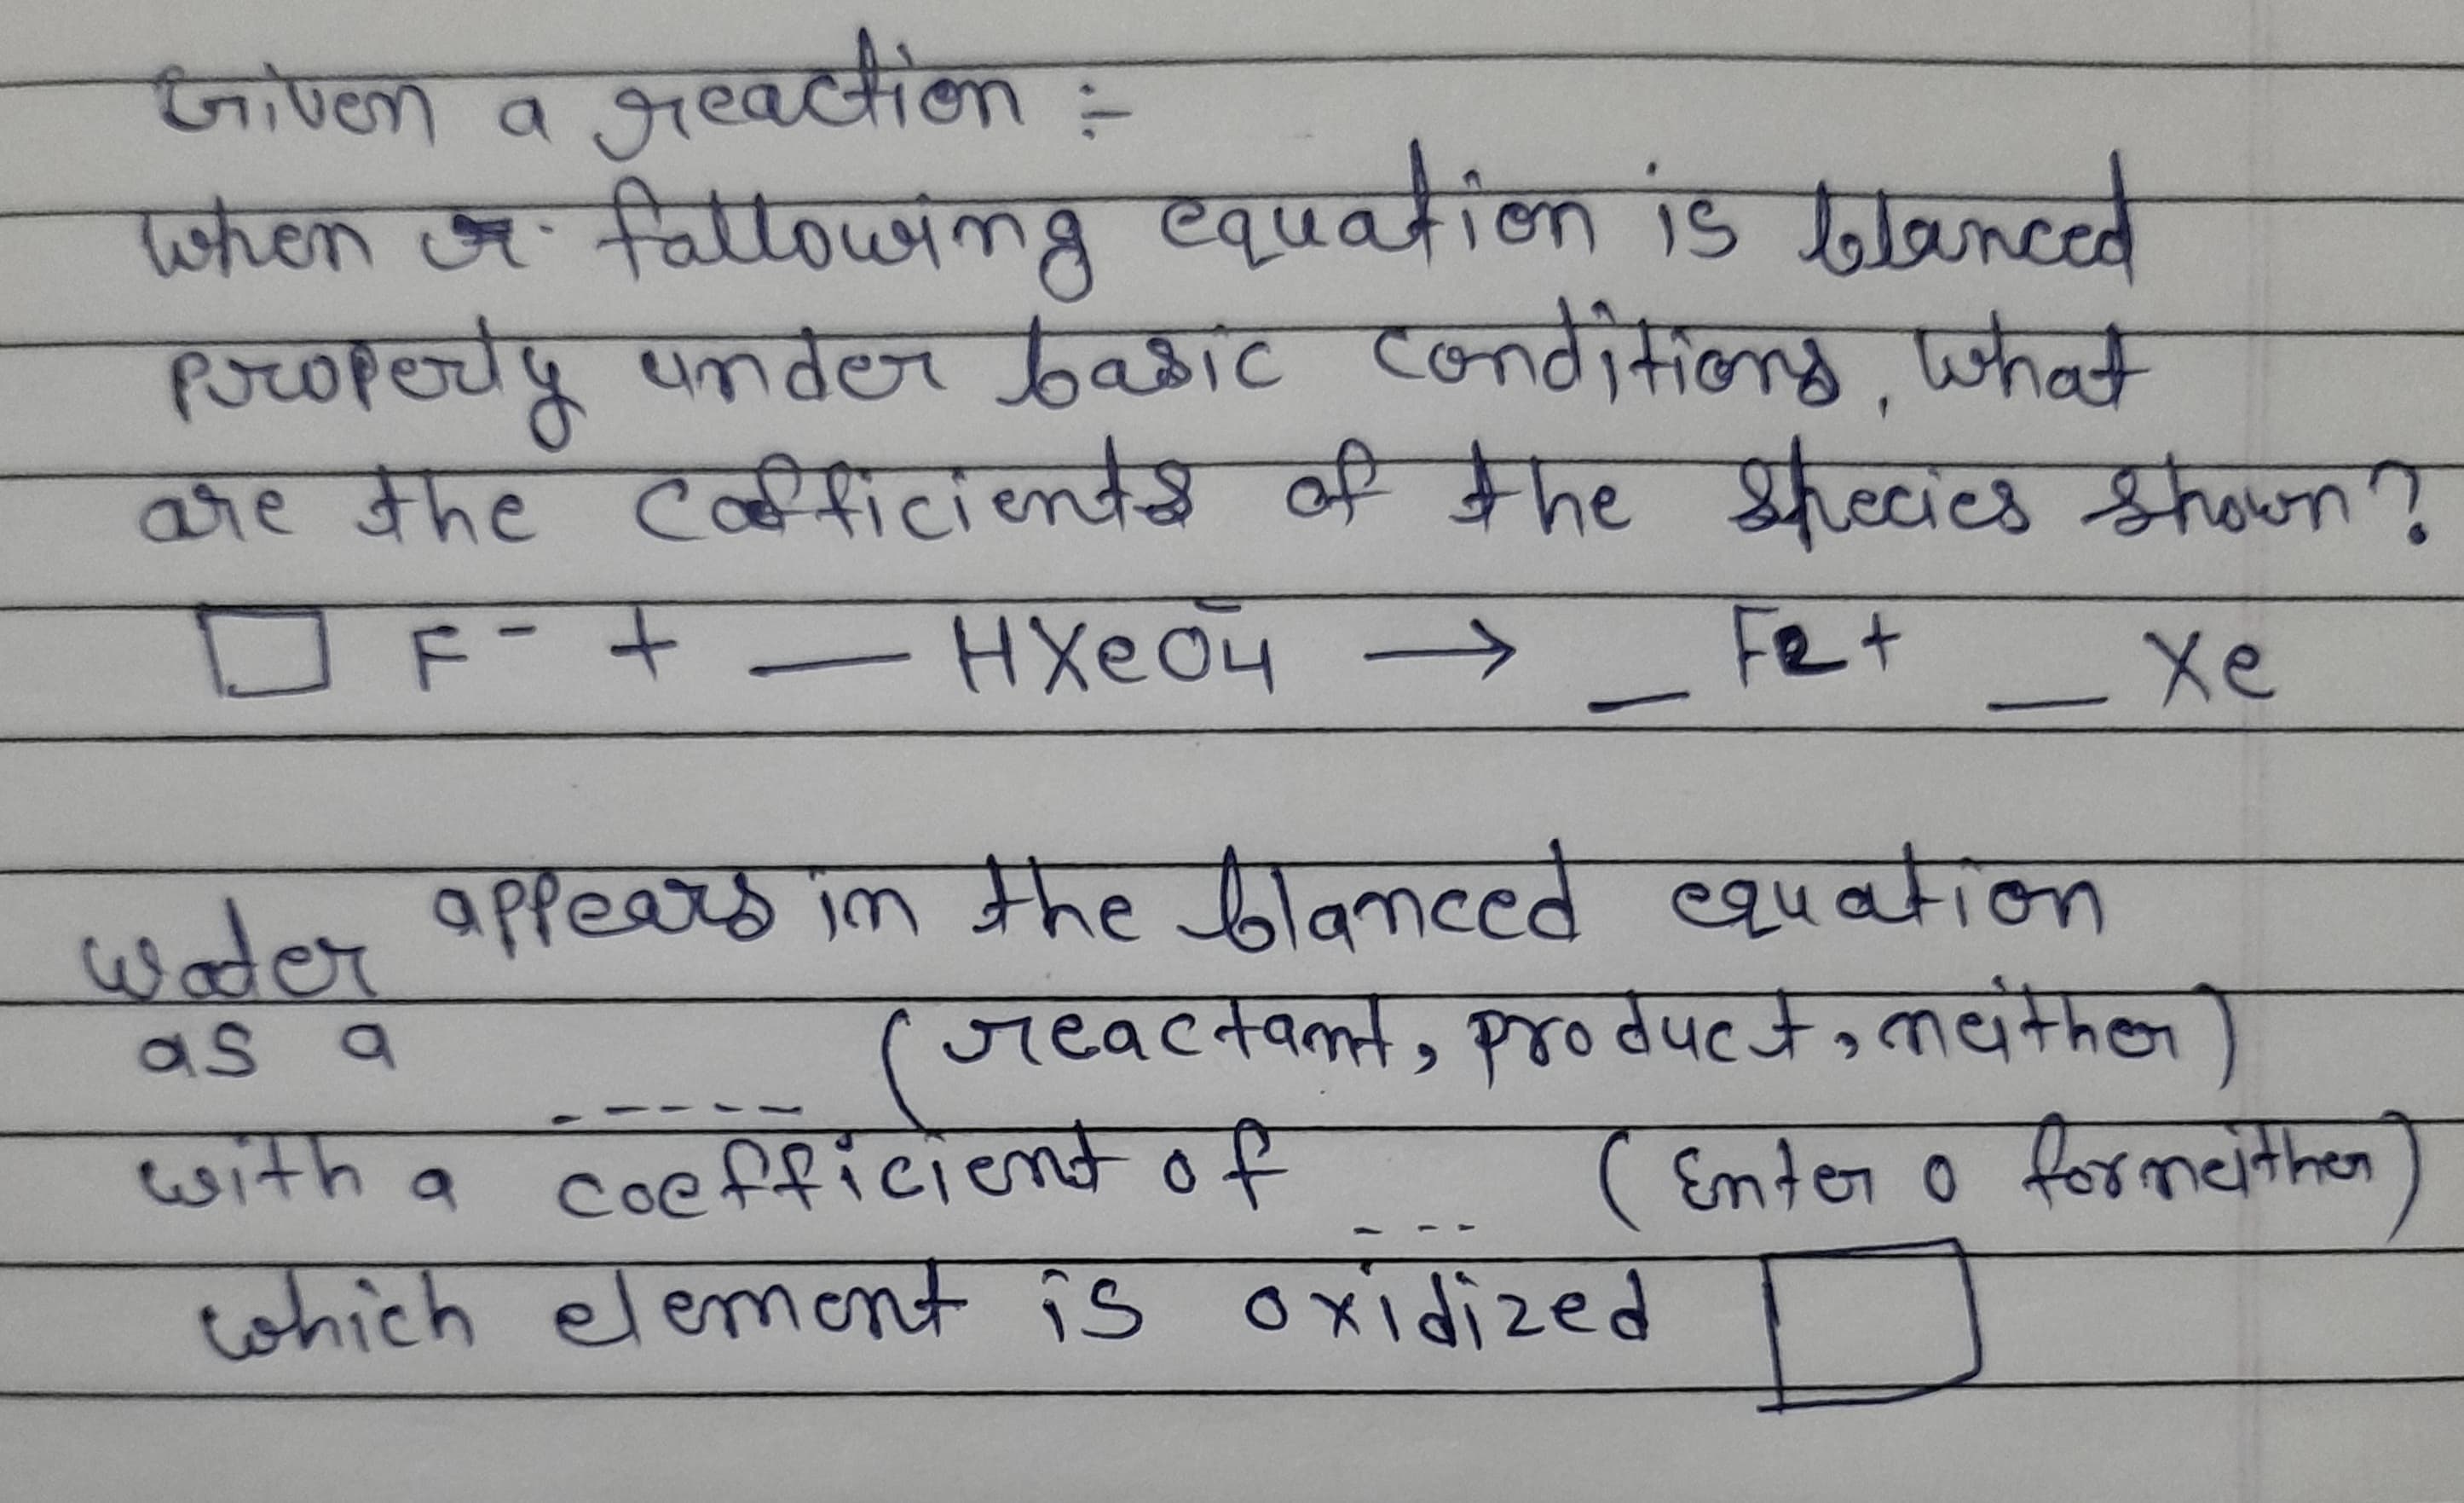 Given a reaction :-
when a following equation is blanced
properly under basic conditions, what
are the cofficients of the species shown?
□ F⁻ + — HXeO₄⁻ → _ F₂ + _ Xe
water appears in the blanced equation
as a ----- (reactant, product, neither)
with a coefficient of --- (Enter 0 for neither)
which element is oxidized □